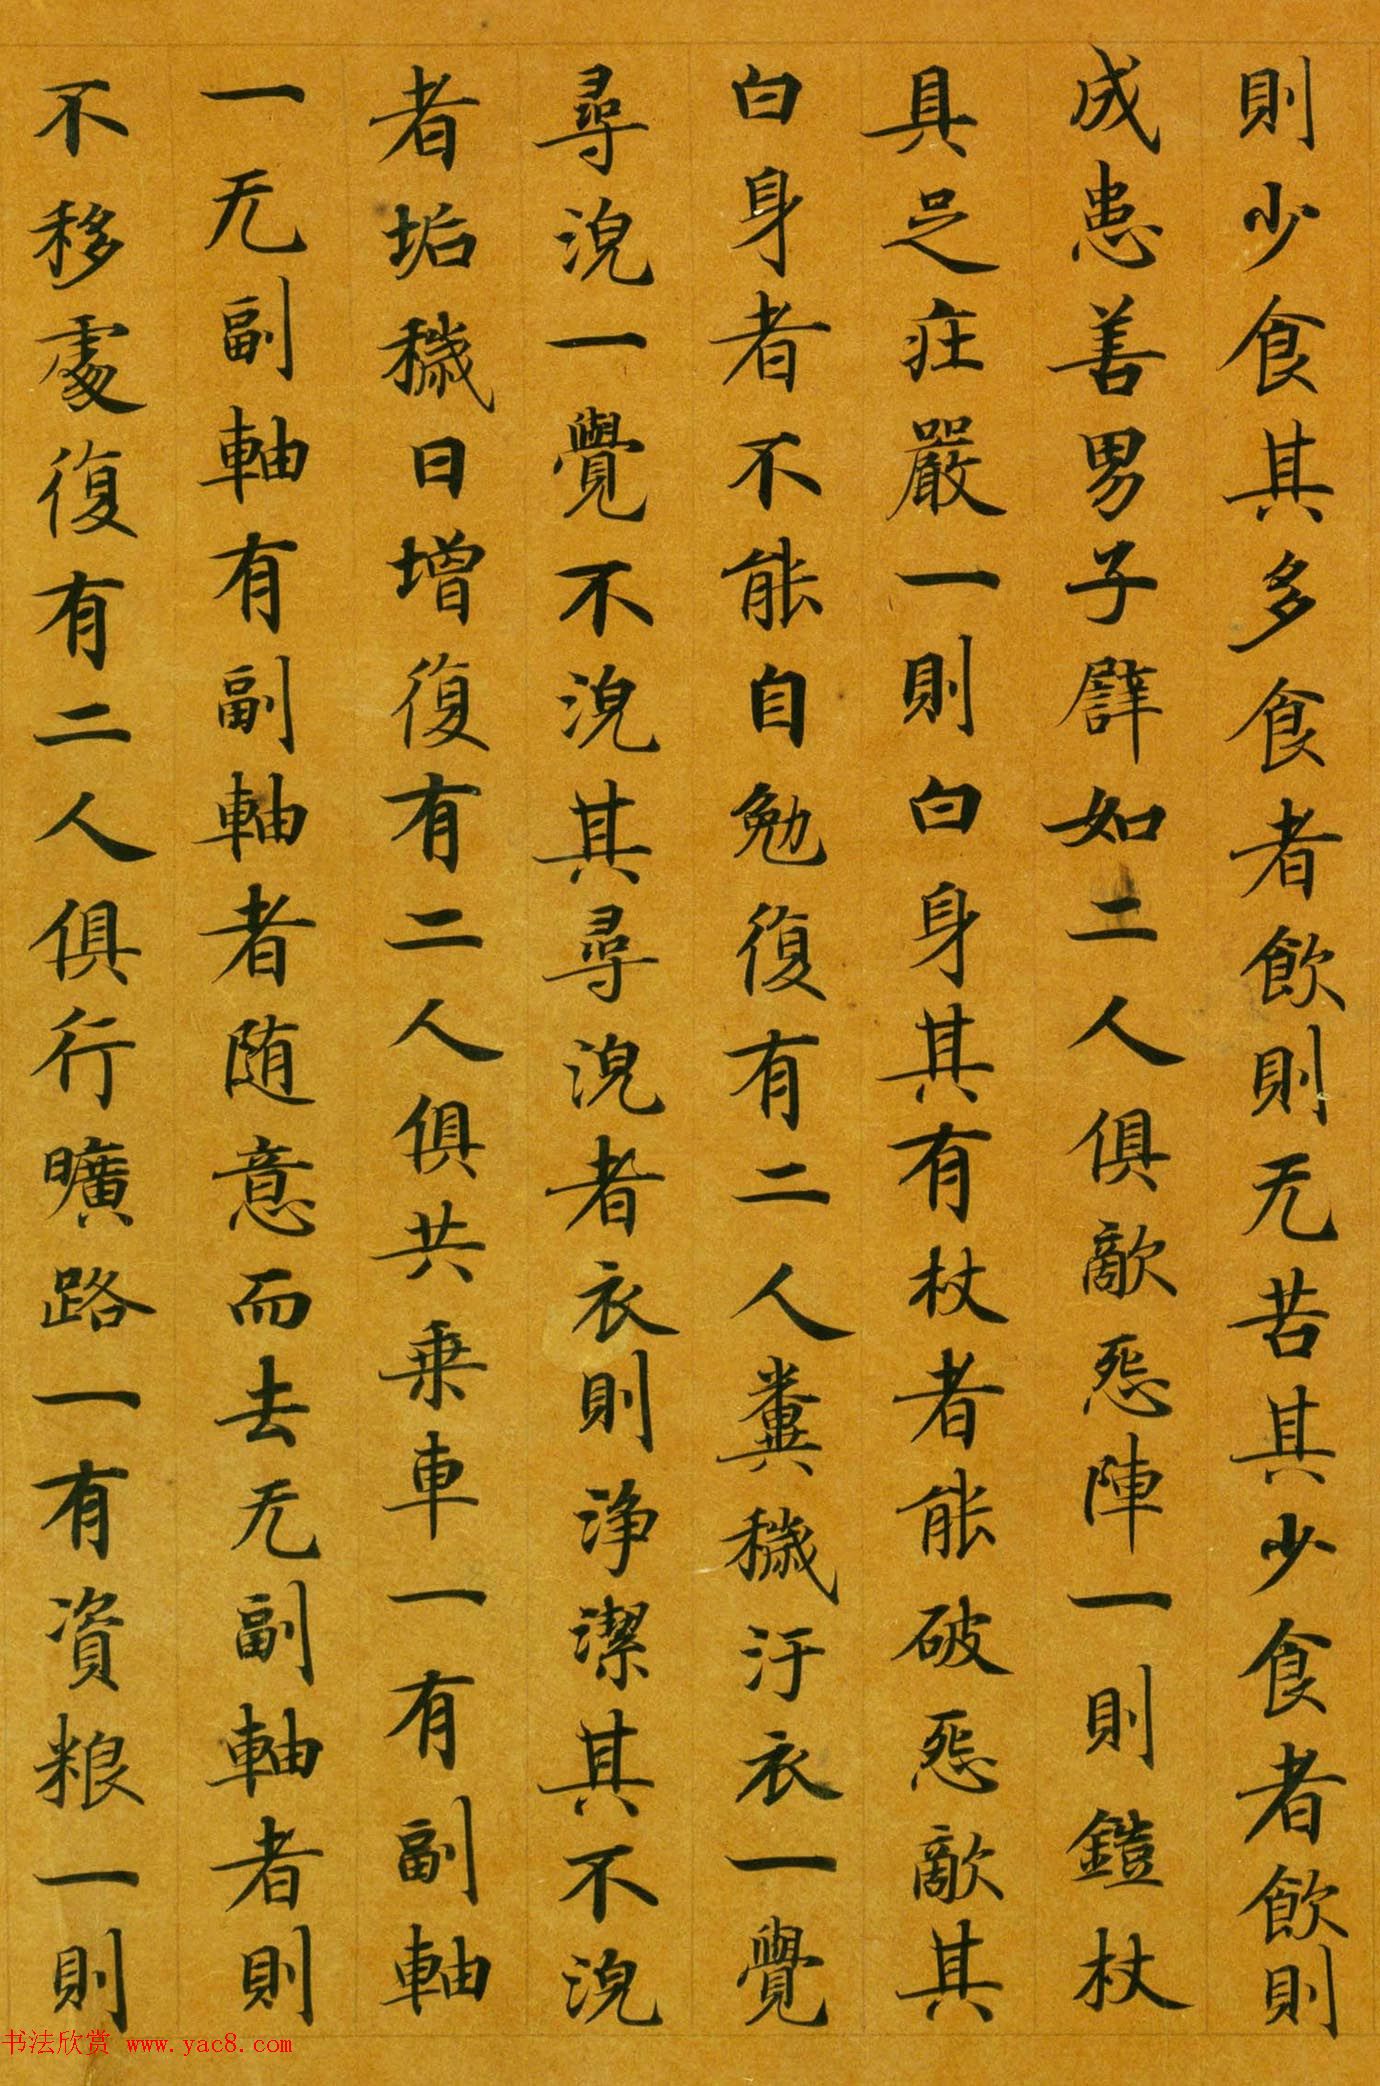 則少食其多食者飲則无苦其少食者飲則
成患善男子譬如二人俱敵怨陣一則鎧杖
具足莊嚴一則白身其有杖者能破怨敵其
白身者不能自勉復有二人糞穢汙衣一覺
尋浣一覺不浣其尋浣者衣則淨潔其不浣
者垢穢日增復有二人俱共乗車一有副軸
一无副軸有副軸者随意而去无副軸者則
不移處復有二人俱行曠路一有資粮一則
书法欣赏 www.yac8.com